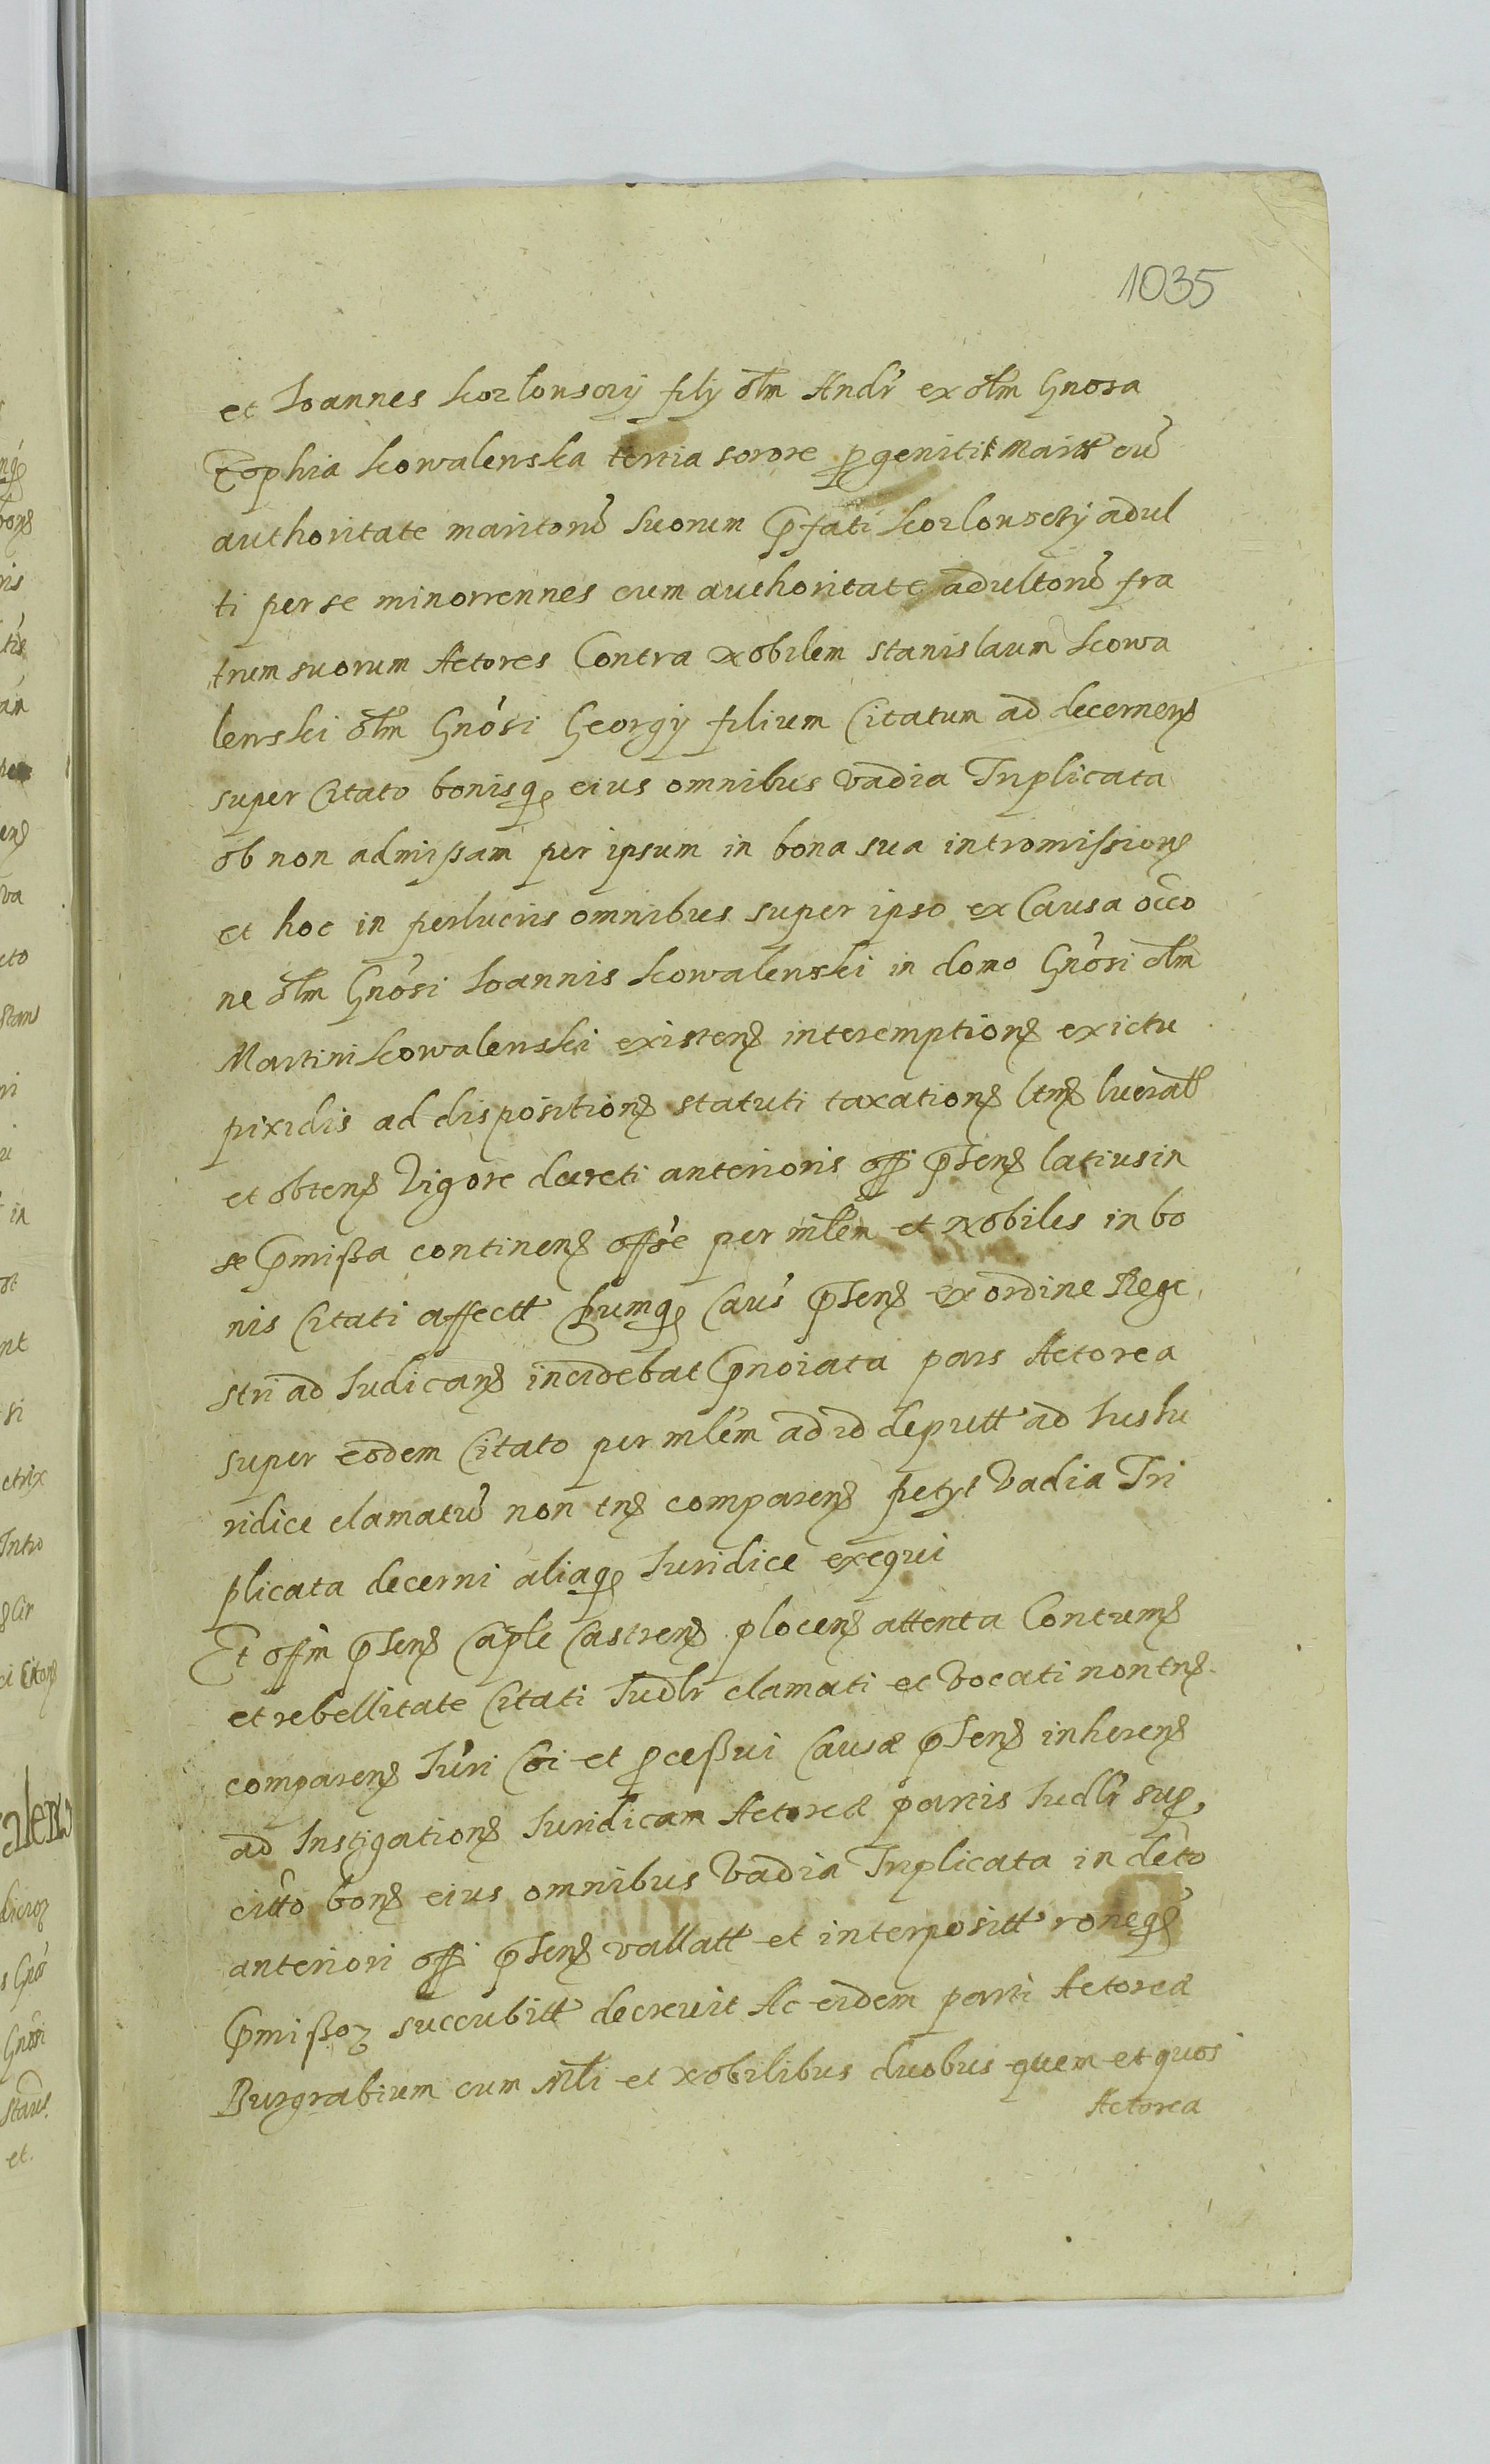 1035
et Ioannes Kozlowscÿ filÿ olm Andr ex olm Gnosa
Zophia Kowalewska tertia sorore progeniti Maritt cu
authoritate maritoru suorum Pfati Kozlowscÿ adul
ti per se minorrennes cum authoritate adultoru fra
trum suorum Actores Contra Nobilem Stanislaum Kowa
lewski olm Gnosi Georgÿ filium Citatum ad decernen
super Citato bonisq eius omnibus Vadia Triplicata
ob non admissam per ipsum in bona sua intromission
et hoc in perlucris omnibus super ipso ex Causa occo
ne olm Gnosi Ioannis Kowalewski in domo Gnosi olm
Martini Kowalewski existen interemption ex ictu
pixidis ad disposition statuti taxation ltm lucratt
et obten Vigore decreti anterioris offi pnsen latius in
se pmissa continen offse per mlem et Nobiles in bo
nis Citati affectt Cumq Caus pnsen ex ordine Rege
stri ad Iudican incidebat Pnoiata pars Actorea
super eodem Citato per mlem ad id deputt ad Ius Iu
ridice clamatu non tn comparen petyt Vadia Tri
plicata decerni aliaq Iuridice exequi
Et offm pnsen Caple Castren plocen attenta Contum
et rebellitate Citati Iudlr clamati et Vocati non tn
comparen Iuri Coi et processui Causæ pnsen inheren
ad Instigation Iuridicam Actoreæ partis Iudlr sup
citto bon eius omnibus Vadia Triplicata in decto
anteriori offi pnsen vallatt et interpositt roneq
Pmissoz succubitt decrevit Ac eidem parti Actoreæ
Burgrabium cum Mli et Nobilibus duobus quem et quos
Actorea